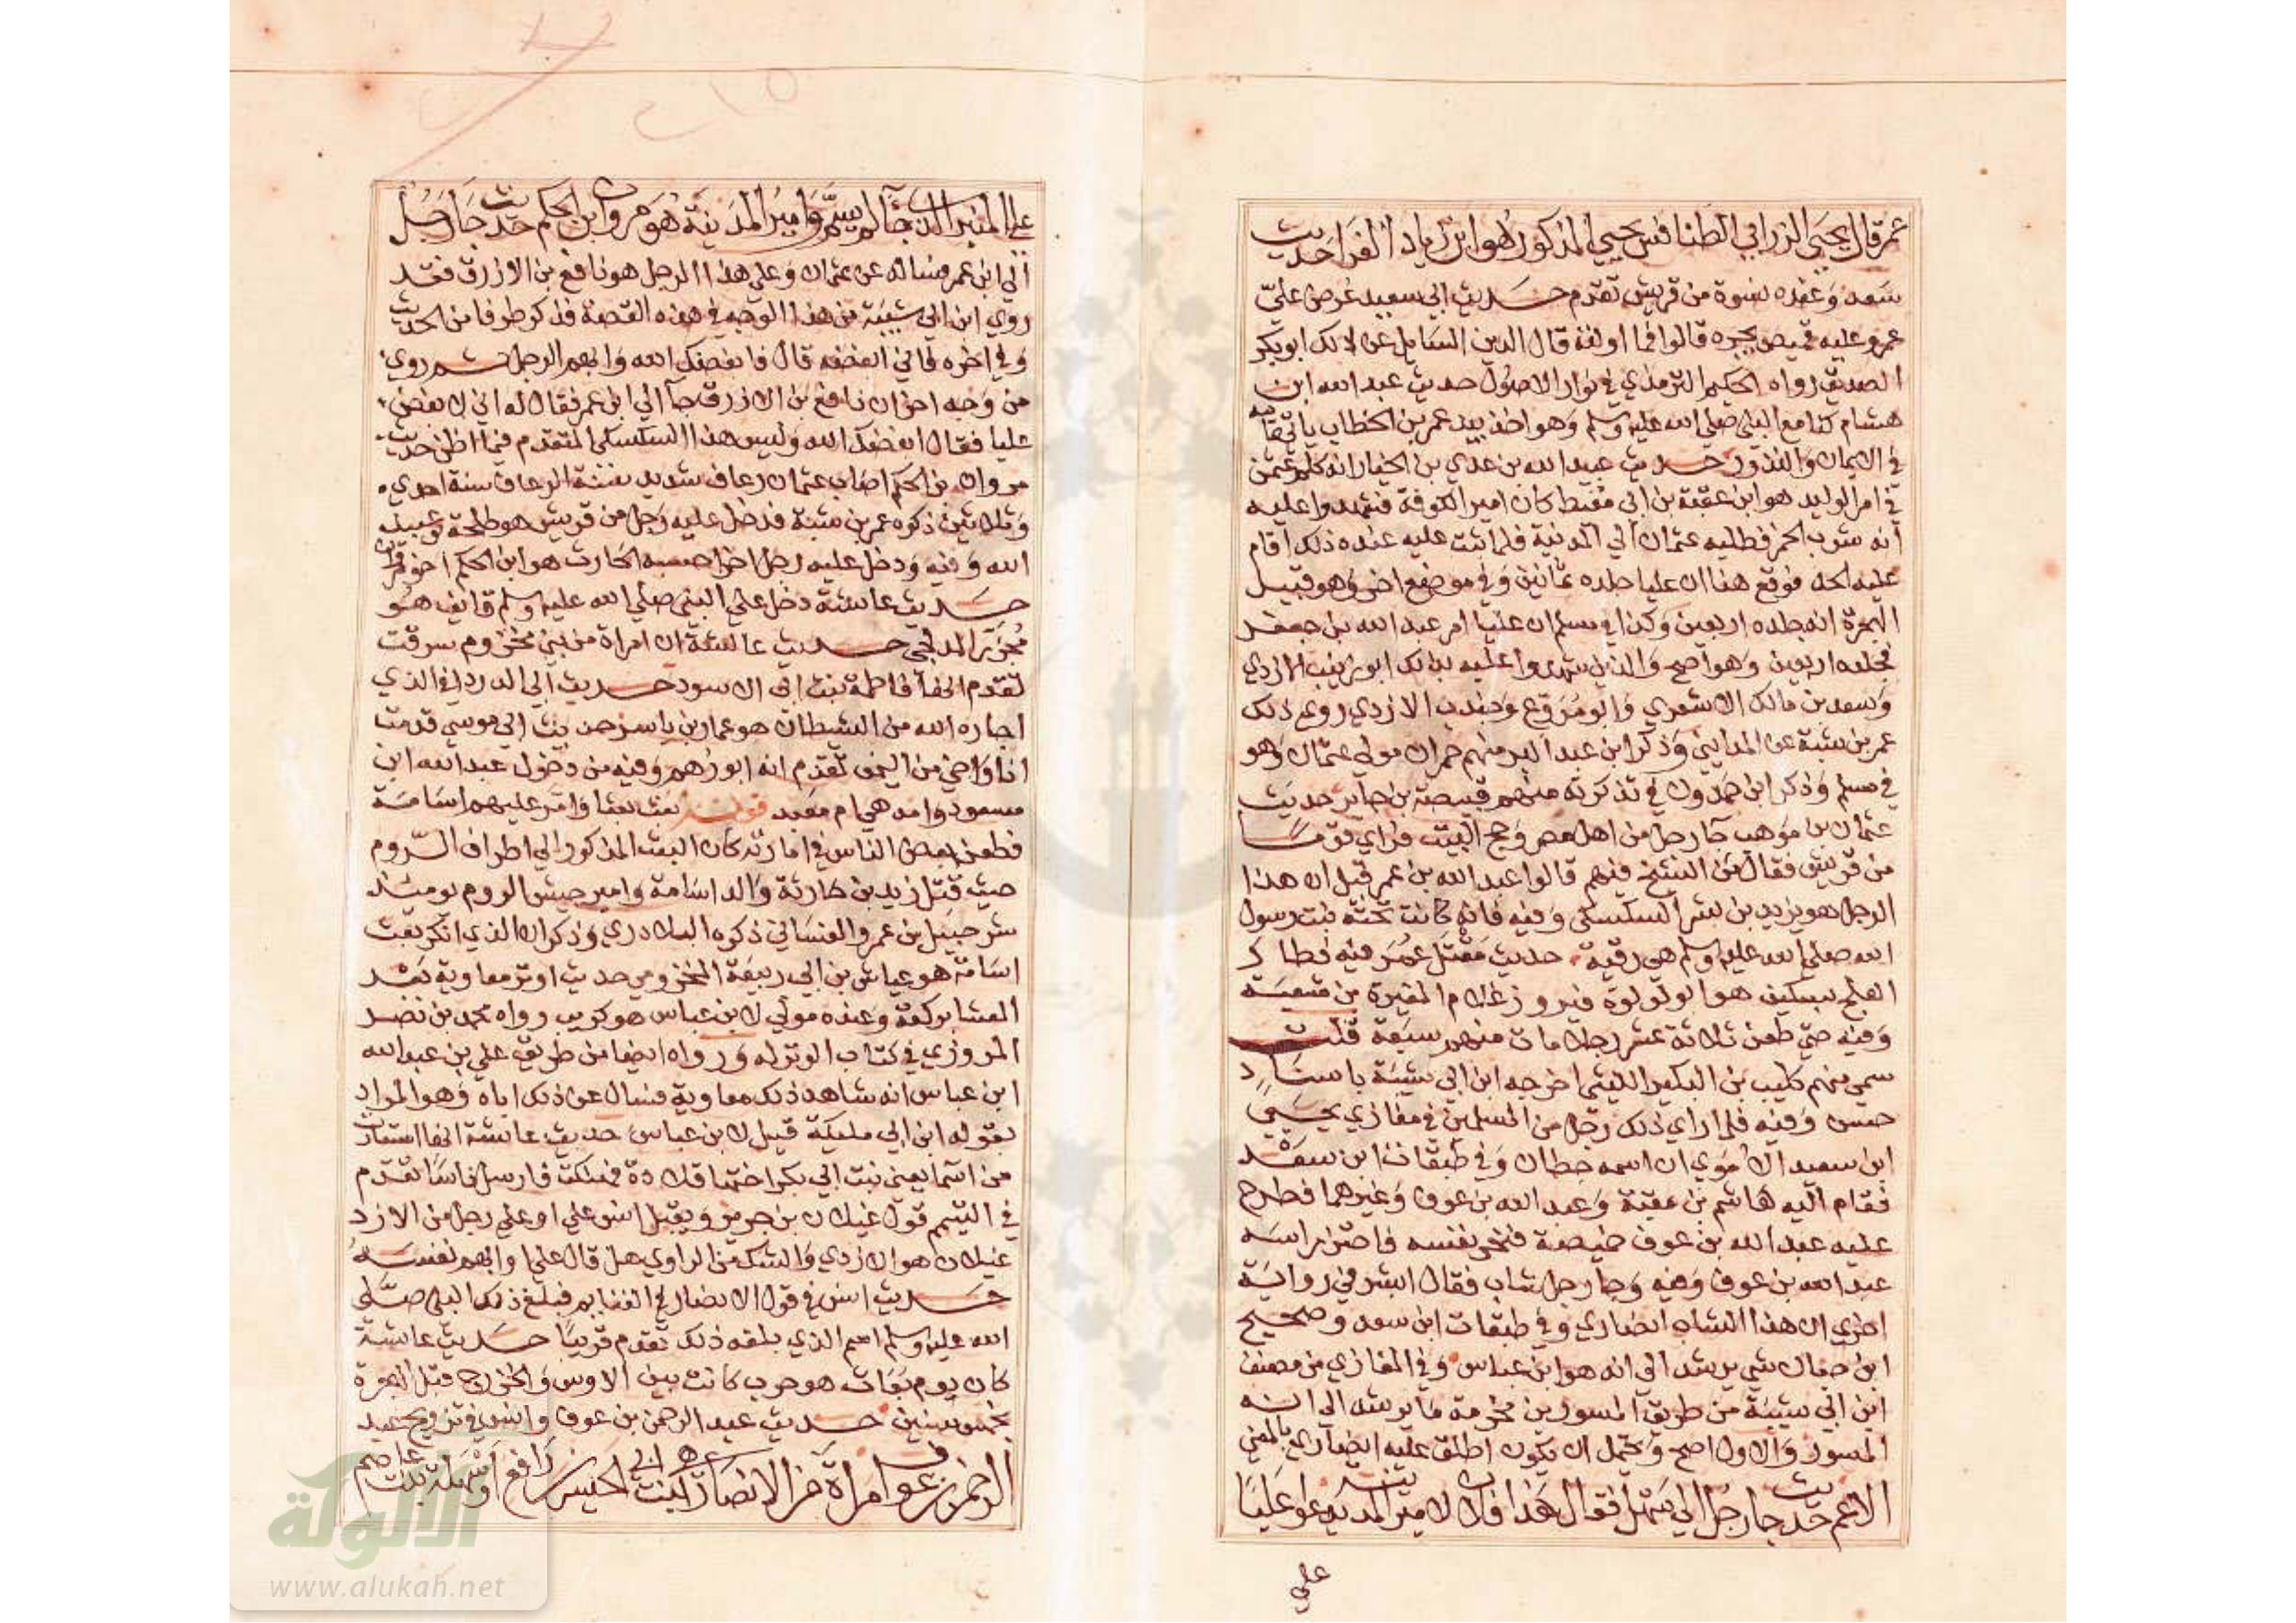 عمر قال يحيى الزرابي الطنافس يحيى المذكور هو ابن زياد الفرا حديث
سعد وعنده نسوة من قريش تقدم حديث ابي سعيد عرض علي
عمر وعليه قميص يجره قالوا فما اولته قال الدين السايل عن ذلك ابو بكر
الصديق رواه الحكيم الترمذي في نوادر الاصول حديث عبد الله ابن
هشام كنا مع النبي صلى الله عليه وسلم وهو اخذ بيد عمر بن الخطاب ياتي تمامه
في الايمان والنذور حديث عبيد الله بن عدي بن الخيار انه كلم عثمن
في امر الوليد هو ابن عقبة بن ابي معيط كان امير الكوفة فشهدوا عليه
انه شرب الخمر فطلبه عثمان الي المدينة فلما ثبت عليه عنده ذلك اقام
عليه الحد فوقع هنا ان عليا جلده ثمانين وفي موضع اخر وهو قبيل
الهجرة انه جلده اربعين وكذا في مسلم ان عليا امر عبد الله بن جعفر
فجلده اربعين وهو اصح والذين شهدوا عليه بذلك ابو زينب الازدي
وسعد بن مالك الاشعري وابو مروع وجندب الازدي روى ذلك
عمر بن شبة عن المدايني وذكر ابن عبد البر منهم حمران مولى عثمان وهو
في مسلم وذكر ابن حمدون في تذكرته منهم قبيصة بن جابر حديث
عثمان بن موهب جا رجل من اهل مصر وحج البيت فراي قوما
من قريش فقال من الشيخ فيهم قالوا عبد الله بن عمر قيل ان هذا
الرجل هو يزيد بن بشر السكسكي وفيه فانه كانت تحته بنت رسول
الله صلى الله عليه وسلم هي رقية حديث مقتل عمر فيه فطار
العلج بسكين هو ابو لولوة فيروز غلام المغيرة بن شعبة
وفيه حتي طعن ثلاثة عشر رجلا مات منهم سبعة قلت
سمي منهم كليب بن البكير الليثي اخرجه ابن ابي شيبة باسناد
حسن وفيه فلما راي ذلك رجل من المسلمين في مغازي يحيى
ابن سعيد الاموي ان اسمه حطان وفي طبقات ابن سعد
فقام اليه هاشم بن عقبة وعبد الله بن عوف وغيرهما فطرح
عليه عبد الله بن عوف خميصة فنحر نفسه فاحتز راسه
عبد الله بن عوف وفيه وجا رجل شاب فقال ابشر في رواية
اخري ان هذا الشاب انصاري وفي طبقات ابن سعد وصحيح
ابن حبان شي يرشد الي انه هو ابن عباس وفي المغازي من مصنف
ابن ابي شيبة من طريق المسور بن مخرمة ما يرشد الي انه
المسور والاول اصح ويحتمل ان يكون اطلق عليه انصاري بالمعني
الاعم حديث جا رجل الي سهل فقال هذا فلان لامير المدينة يدعو عليا
علي
علي المنبر الذي جا لم يسم وامير المدينة هو مروان ابن الحكم حديث جا رجل
الي ابن عمر فساله عن عثمان وعلي هذا الرجل هو نافع بن الازرق فقد
روي ابن ابي شيبة من هذا الوجه في هذه القصة فذكر طرفا من الحديث
وفي اخره فاني ابغضه قال فابغضك الله وابهم الرجل ثم روي
من وجه اخر ان نافع بن الازرق جا الي ابن عمر فقال له اني لابغض
عليا فقال ابغضك الله وليس هذا السكسكي المتقدم فيما اظن حديث
مروان بن الحكم اصاب عثمان رعاف شديد سنة الرعاف سنة احدي
وثلاثين ذكره عمر بن شبة فدخل عليه رجل من قريش هو طلحة بن عبيد
الله وفيه ودخل عليه رجل اخر احسبه الحارث هو ابن الحكم اخو مروان
حديث عايشة دخل علي النبي صلى الله عليه وسلم قايف هو
مجزز المدلجي حديث عايشة ان امراة من بني مخزوم سرقت
تقدم انها فاطمة بنت ابي الاسود حديث ابي الدردا في الذي
اجاره الله من الشيطان هو عمار بن ياسر حديث ابي موسي قدمت
انا واخي من اليمن تقدم انه ابو رهم وفيه من دخول عبد الله ابن
مسعود وامه هي ام معبد قوله بعث بعثا وامر عليهم اسامة
فطعن بعض الناس في امارته كان البعث المذكور الي اطراف الروم
حيث قتل زيد بن حارثة والد اسامة وامير جيش الروم يوميذ
شرحبيل بن عمرو الغساني ذكره البلاذري وذكر ان الذي انكر بعث
اسامة هو عياش بن ابي ربيعة المخزومي حديث اوتر معاوية بعد
العشا بركعة وعنده مولي لابن عباس هو كريب رواه محمد بن نصر
المروزي في كتاب الوتر له ورواه ايضا من طريق علي بن عبد الله
ابن عباس انه شاهد ذلك معاوية فسال عن ذلك اباه وهو المراد
بقوله ابن ابي مليكة قيل لابن عباس حديث عايشة انها استعارت
من اسما يعني بنت ابي بكر اختها قلادة فهلكت فارسل ناسا تقدم
في التيمم قول غيلان بن جرير ويقبل انس علي او علي رجل من الازد
غيلان هو الازدي والشك من الراوي هل قال علي او ابهم نفسه
حديث انس في قول الانصار في الغنايم فبلغ ذلك النبي صلي
الله عليه وسلم اسم الذي بلغه ذلك تقدم قريبا حديث عايشة
كان يوم بعاث هو حرب كانت بين الاوس والخزرج قبل الهجرة
بخمس سنين حديث عبد الرحمن بن عوف وانس في تزويج عبد
الرحمن بن عوف امراة من الانصار هي ابنت ابي الحيسر بن رافع او سهلة بنت عاصم
الألوكة
www.alukah.net